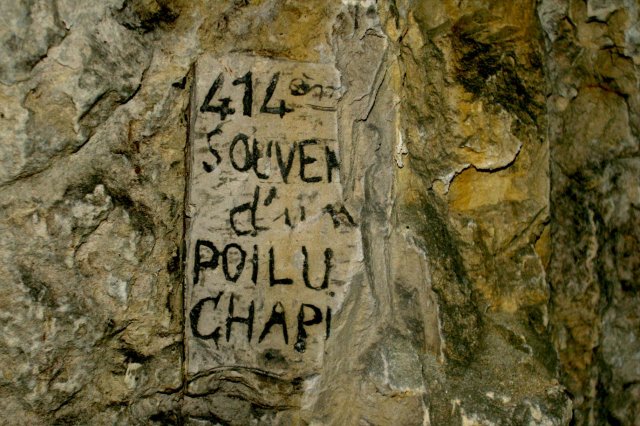 414ème
SOUVEN
d'un
POILU
CHAPI